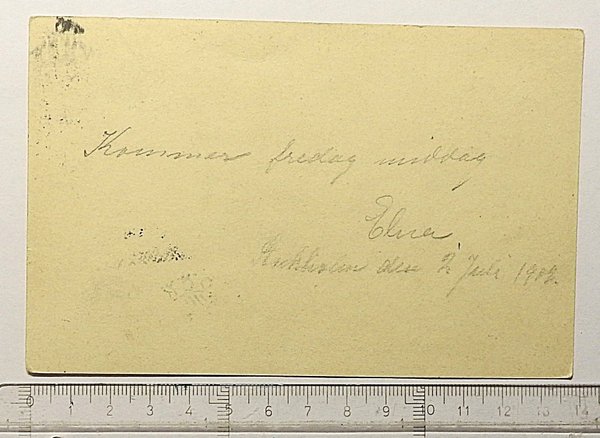 Kommer fredag middag
Elna
Stockholm den 2 Juli 1902.
1 2 3 4 5 6 7 8 9 10 11 12 13 14